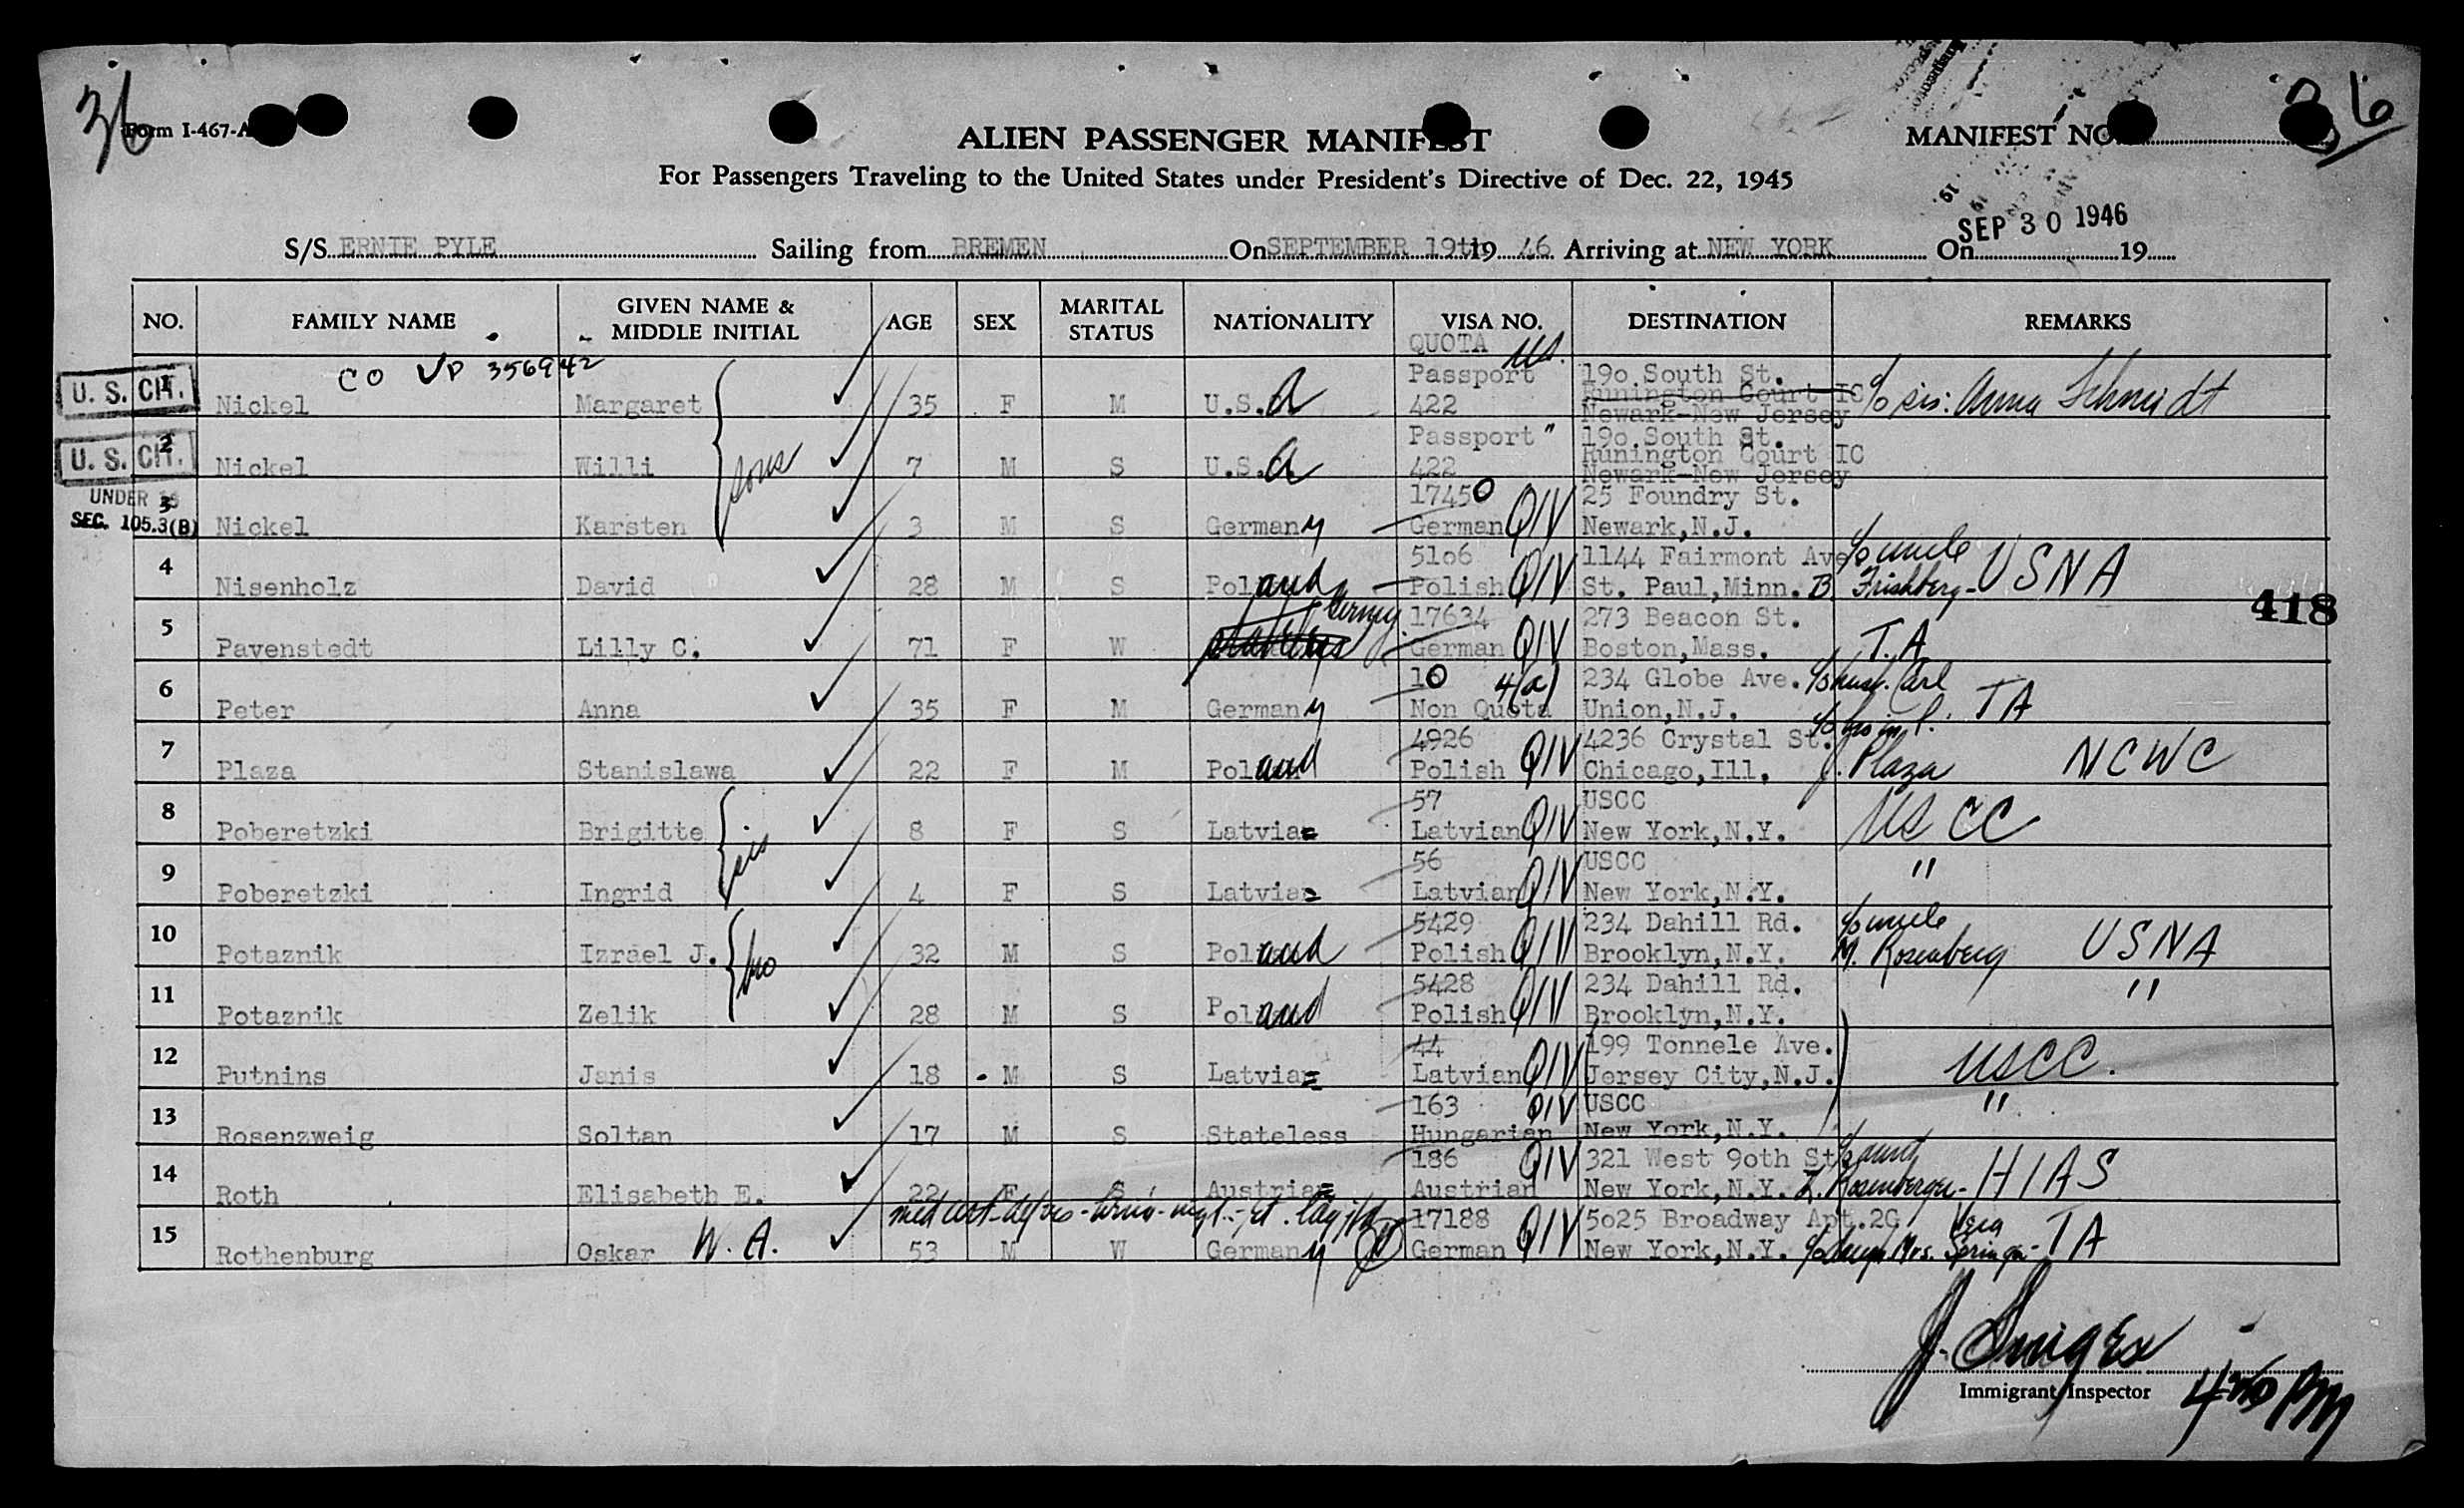 36
Form I-467-A
ALIEN PASSENGER MANIFEST
MANIFEST NO. 36
For Passengers Traveling to the United States under President's Directive of Dec. 22, 1945
SEP 30 1946
S/S ERNIE PYLE Sailing from BREMEN On SEPTEMBER 19th 19 46 Arriving at NEW YORK On 19
NO. FAMILY NAME GIVEN NAME & MIDDLE INITIAL AGE SEX MARITAL STATUS NATIONALITY VISA NO. DESTINATION REMARKS
QUOTA US.
CO VP 356942
U. S. CIT. 1 Nickel Margaret 35 F M U.S.A Passport 422 190 South St. Runington Court IC Newark-New Jersey c/o sis: Anna Schmidt
U. S. CIT. 2 Nickel Willi 7 M S U.S.A Passport " 422 190 South St. Runington Court IC Newark-New Jersey
sons
UNDER 16 SEC. 105.3(B) 3 Nickel Karsten 3 M S Germany 17450 German QIV 25 Foundry St. Newark,N.J.
4 Nisenholz David 28 M S Poland 5106 Polish QIV 1144 Fairmont Ave St. Paul,Minn. c/o uncle B. Frishberg - USNA
418
5 Pavenstedt Lilly C. 71 F W stateless Germy. 17634 German QIV 273 Beacon St. Boston,Mass. T.A
6 Peter Anna 35 F M Germany 10 4(a) Non Quota 234 Globe Ave. Union,N.J. c/o husb. Carl TA
7 Plaza Stanislawa 22 F M Poland 4926 Polish QIV 4236 Crystal St. Chicago,Ill. c/o bro in l. J. Plaza NCWC
8 Poberetzki Brigitte 8 F S Latvia 57 Latvian QIV USCC New York,N.Y. US CC
sis
9 Poberetzki Ingrid 4 F S Latvia 56 Latvian QIV USCC New York,N.Y. "
10 Potaznik Izrael J. 32 M S Poland 5429 Polish QIV 234 Dahill Rd. Brooklyn,N.Y. c/o uncle M. Rosenberg USNA
bro
11 Potaznik Zelik 28 M S Poland 5428 Polish QIV 234 Dahill Rd. Brooklyn,N.Y. "
12 Putnins Janis 18 M S Latvia 44 Latvian QIV 199 Tonnele Ave. Jersey City,N.J. USCC.
13 Rosenzweig Soltan 17 M S Stateless 163 Hungarian QIV USCC New York,N.Y. "
14 Roth Elisabeth E. 22 F S Austria 186 Austrian QIV 321 West 90th St New York,N.Y. c/o aunt Rosenberger - HIAS
med cert
15 Rothenburg Oskar W. A. 53 M W Germany 17188 German QIV 5025 Broadway Apt.2G New York,N.Y. Mrs. Vera Springer - TA
Immigrant Inspector
PM